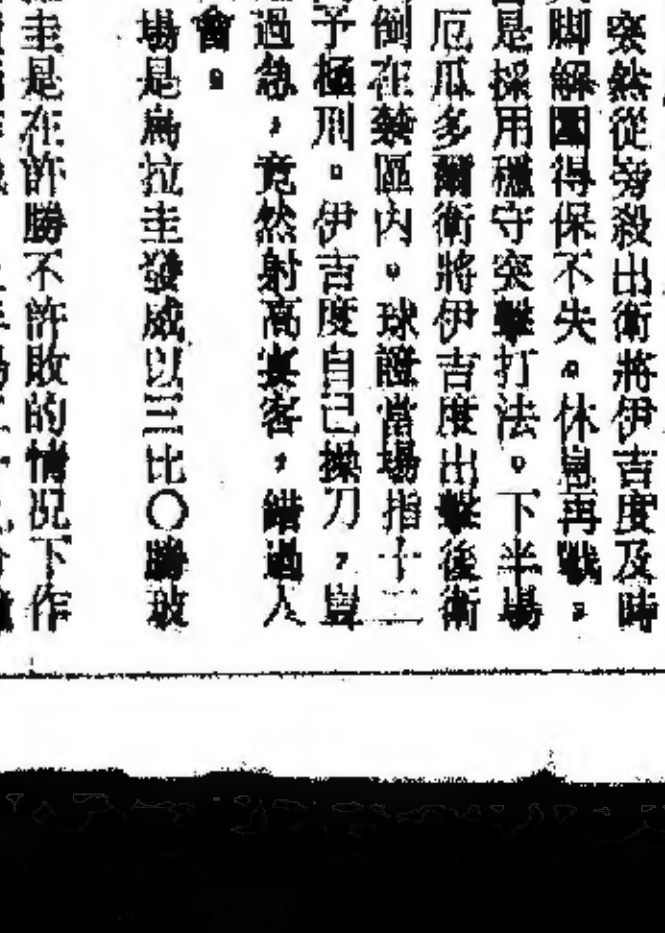 突然從旁殺出衛將伊吉度及時
脚解圍得保不失。休息再戰，
是採用穩守突擊打法。下半場
厄瓜多爾衛將伊吉度出擊後衛
倒在禁區內。球證當場指十二
予極刑。伊吉度自己操刀，豈
過急，竟然射高寞客，錯過人
會。
場是烏拉圭發威以三比〇勝敌
圭是在許勝不許敗的情况下作